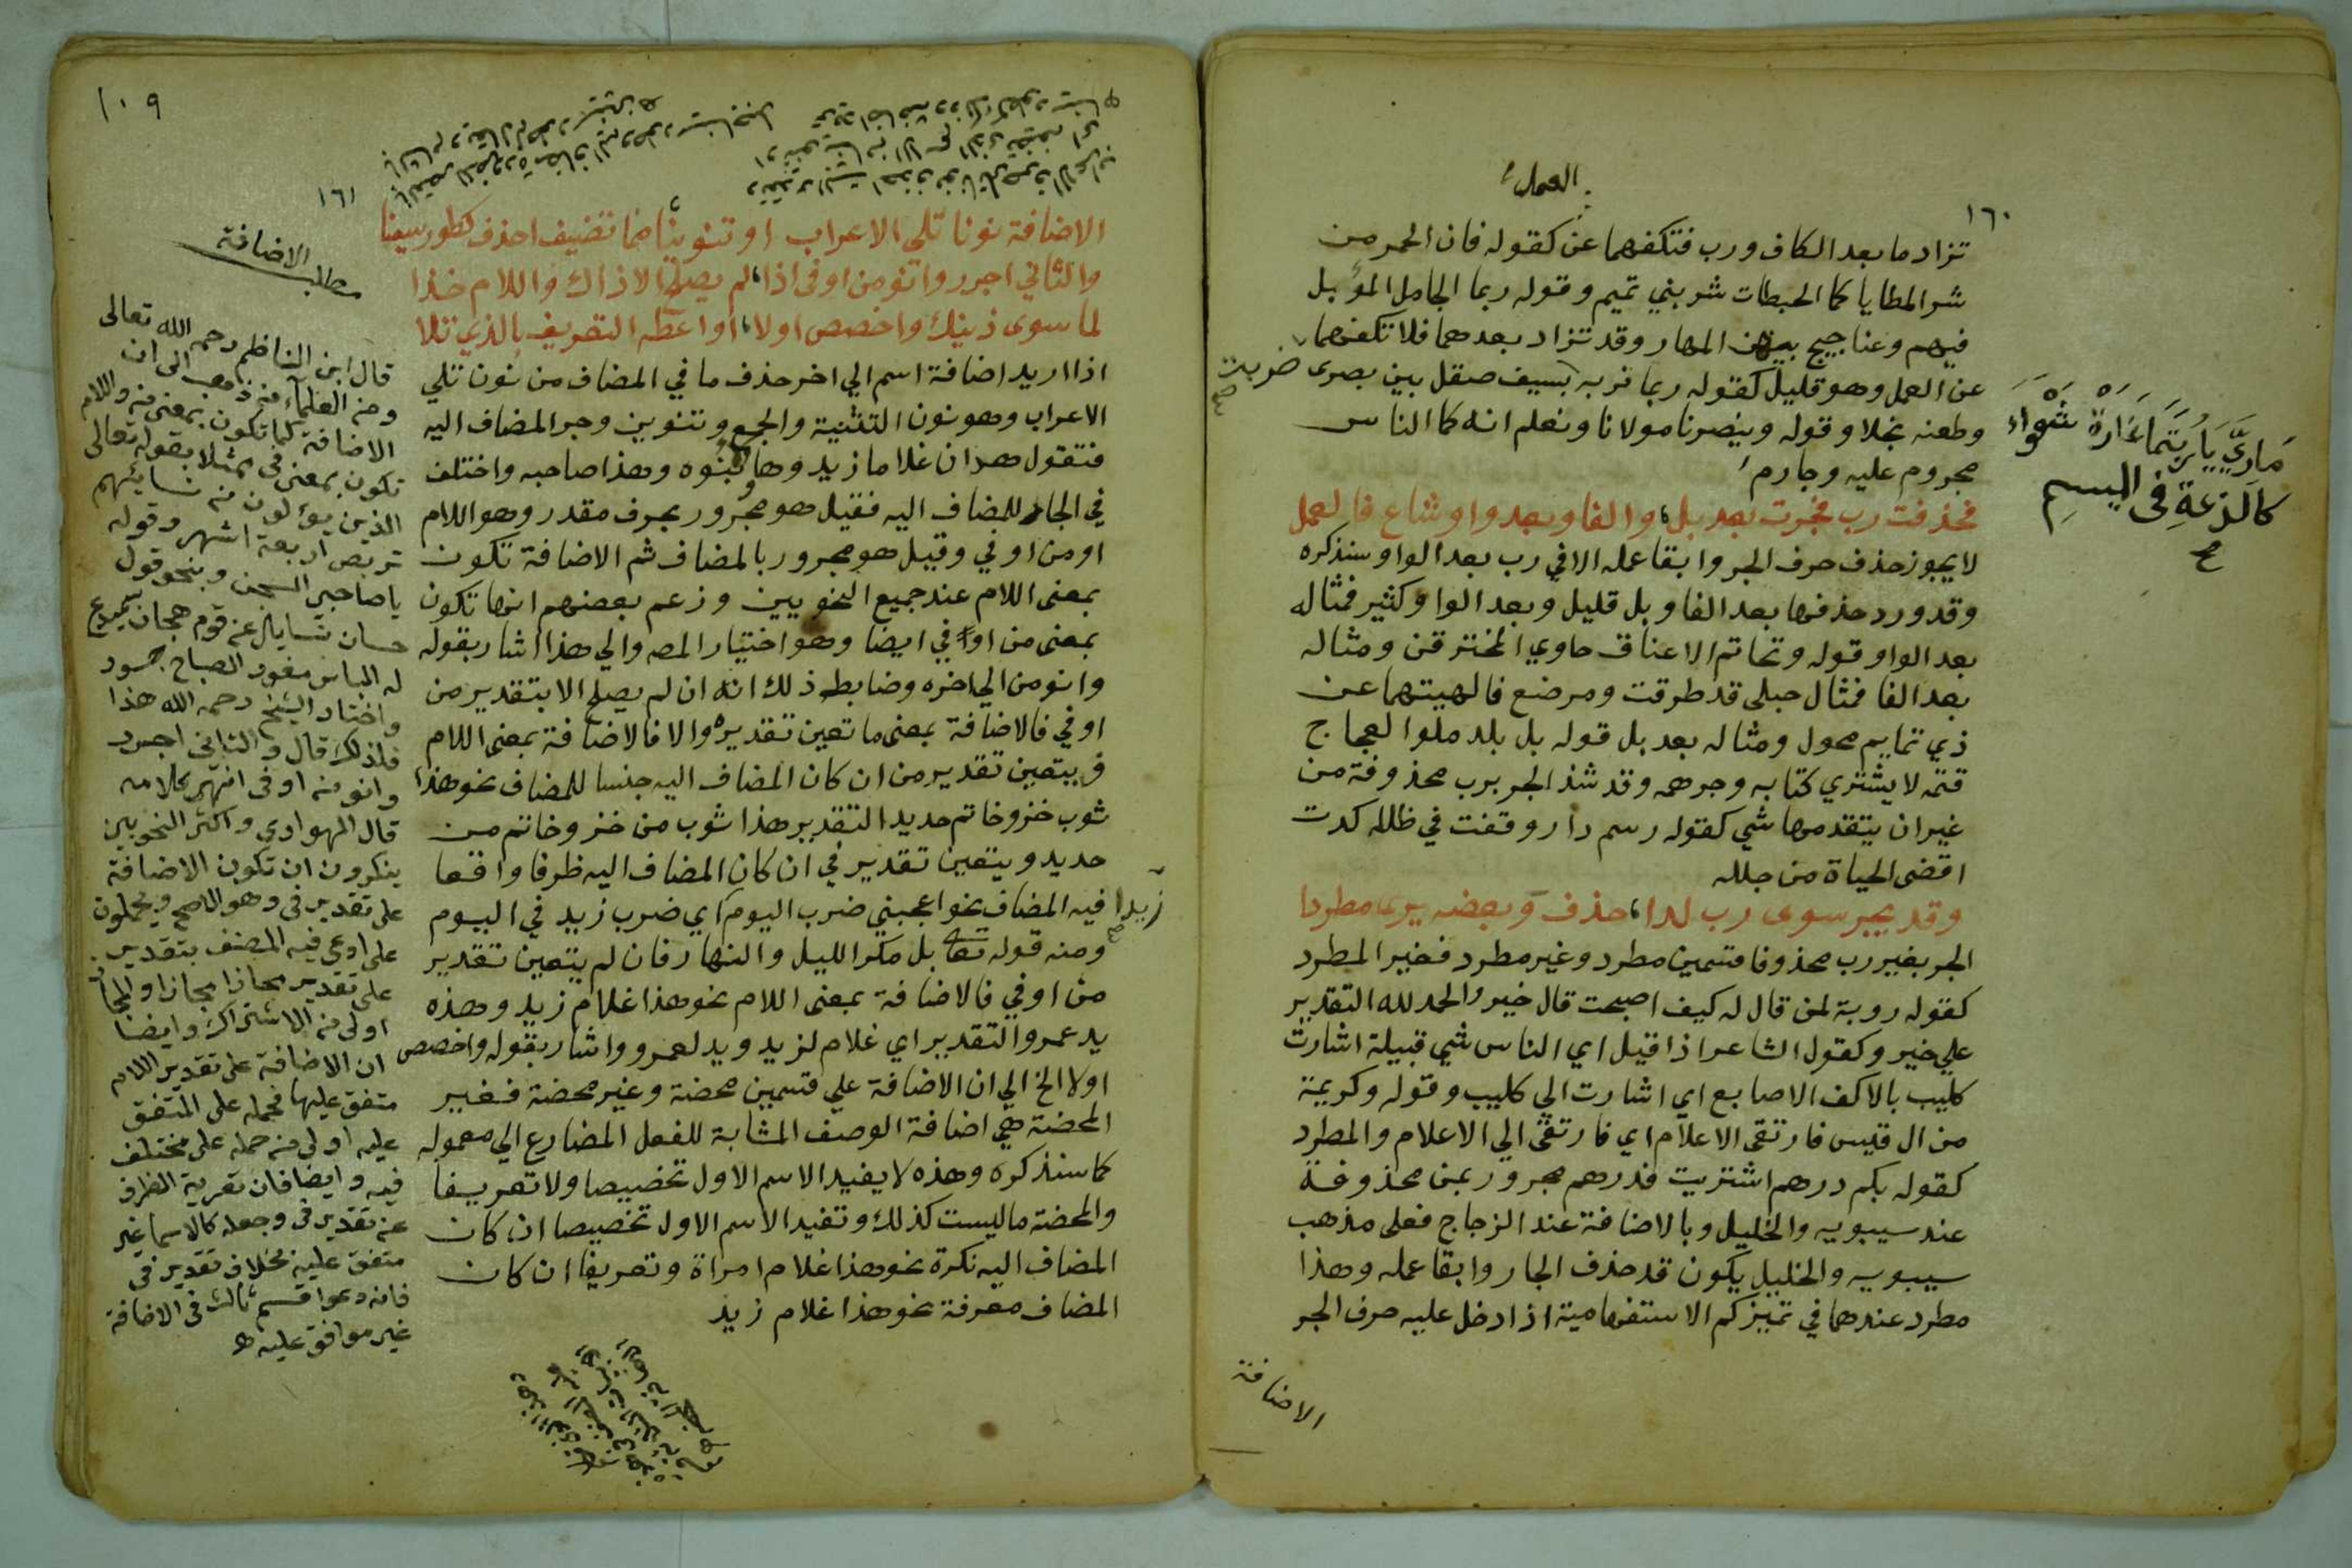 العمل
١٦٠
تزاد ما بعد الكاف ورب فتكفهما عن كقوله فان الحمر من
شر المطايا كما الحبطات شر بني تميم وقوله ربما الجامل المؤبل
فيهم وعناجيج بينهن المهار وقد تزاد بعدهما فلا تكفهما
عن العمل وهو قليل كقوله ربما ضربه بسيف صقل بين بصرى
ضربت صح
وطعنه نجلا وقوله وينصرنا مولانا ونعلم انه كما الناس
مجروم عليه وجارم
ماويّ يا ربتما غارة شعواء
كاللذعة في الميسم
فحذفت رب فجرت بعد بل والفا وبعد واو شاع فا لعمل
لا يجوز حذف حرف الجر وابقا عمله الا في رب بعد الواو سنذكره
وقد ورد حذفها بعد الفا وبل قليل وبعد الواو كثير فمثاله
بعد الواو قوله وقاتم الاعناق حاوي المخترقن ومثاله
بعد الفا فمثال حبلى قد طرقت ومرضع فالهيتها عن
ذي تمايم محول ومثاله بعد بل قوله بل بلد ملوا لعجاج
قتمه لا يشتري كتابه وجرهمه وقد شذ الجر برب محذوفة من
غير ان يتقدمها شي كقوله رسم دار وقفت في طلله كدت
اقضى الحياة من جلله
وقد يجر سوى رب لدا حذف وبعضه يرى مطردا
الجر بغير رب محذوفا قسمين مطرد وغير مطرد فغير المطرد
كقوله روبة لمن قال له كيف اصبحت قال خير والحمد لله التقدير
علي خير وكقول الشاعر اذا قيل اي الناس شي قبيلة اشارت
كليب بالاكف الاصابع اي اشارت الي كليب وقوله وكريمة
من ال قيس فارتقى الاعلام اي فارتقى الي الاعلام والمطرد
كقوله بكم درهم اشتريت فدرهم مجرور بمن محذوفة
عند سيبويه والخليل وبالاضافة عند الزجاج فعلى مذهب
سيبويه والخليل يكون قد حذف الجار وابقا عمله وهذا
مطرد عندهما في تميز كم الاستفهامية اذا دخل عليه حرف الجر
الاضافة
١٠٩
١٦١
مطلب الاضافة
الاضافة نونا تلي الاعراب او تنوينا مما تضيف احذف كطور سينا
والثاني اجرر وانو من او في اذا لم يصلح الا ذاك واللام خذا
لما سوى ذينك واخصص اولا او اعطه التعريف بالذي تلا
اذا اريد اضافة اسم الي اخر حذف ما في المضاف من نون تلي
الاعراب وهو نون التثنية والجمع وتنوين وجر المضاف اليه
فتقول هذان غلاما زيد وها بنوه وهذا صاحبه واختلف
في الجار للمضاف اليه فقيل هو مجرور بحرف مقدر وهو اللام
او من او في وقيل هو مجرور بالمضاف ثم الاضافة تكون
بمعنى اللام عند جميع النحويين وزعم بعضهم انها تكون
بمعنى من او في ايضا وهو اختيار المصه والي هذا اشار بقوله
وانو من الي اخره وضابط ذلك انه ان لم يصلح الا بتقدير من
او في فالاضافة بمعنى ما تعين تقديره والا فالاضافة بمعنى اللام
ويتعين تقدير من ان كان المضاف اليه جنسا للمضاف نحو هذا
ثوب خز وخاتم حديد التقدير هذا ثوب من خز وخاتم من
حديد ويتعين تقدير في ان كان المضاف اليه ظرفا واقعا
فيه المضاف نحو اعجبني ضرب اليوم اي ضرب زيد في اليوم
زيدا صح
ومنه قوله تعا بل مكر الليل والنهار فان لم يتعين تقدير
من او في فالاضافة بمعنى اللام نحو هذا غلام زيد وهذه
يد عمرو التقدير اي غلام لزيد ويد لعمرو واشار بقوله واخصص
اولا الخ الي ان الاضافة علي قسمين محضة وغير محضة فغير
المحضة هي اضافة الوصف المشابة للفعل المضارع الي معموله
كما سنذكره وهذه لا يفيد الاسم الاول تخصيصا ولا تعريفا
والمحضة ما ليست كذلك وتفيد الاسم الاول تخصيصا ان كان
المضاف اليه نكرة نحو هذا غلام امراة وتعريفا ان كان
المضاف معرفة نحو هذا غلام زيد
قال ابن الناظم رحمه الله تعالى
ومن العلماء من ذهب الى ان
الاضافة كما تكون بمعنى من واللام
تكون بمعنى في ممثلا بقوله تعالى
الذين يؤلون من نسائهم
تربص اربعة اشهر وقوله
يا صاحبي السجن وبنحو قول
حسان تسايل عن قوم هجان سميدع
له الباس مغوار الصباح جسور
واختار الشيخ رحمه الله هذا
فلذلك قال والثاني اجرر
وانو من او في انتهى كلامه
قال الهواري واكثر النحويين
ينكرون ان تكون الاضافة
على تقدير في وهو الاصح ويحملون
على ادعى فيه المصنف بتقدير
على تقدير مجازا مجازا والمجاز
اولى من الاشتراك وايضا
ان الاضافة على تقدير اللام
متفق عليها فحمله على المتفق
عليه اولى من حمله على مختلف
فيه وايضا فان تعرية الظرف
عن تقدير في وجعله كالاسما غير
متفق عليه بخلاف تقدير في
فانه دعوا قسم ثالث في الاضافة
غير موافق عليه